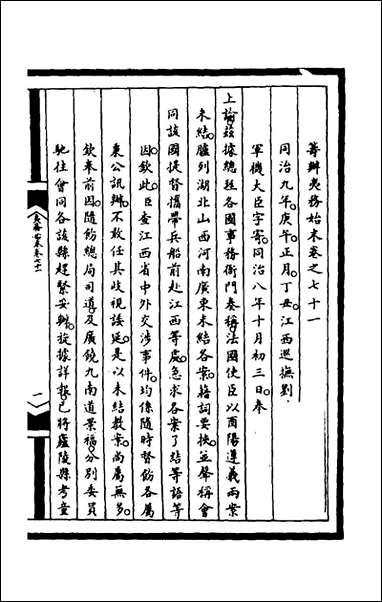 籌辦夷務始末卷之七十一
同治九年庚午正月丁丑江西巡撫劉
軍機大臣字寄同治八年十月初三日奉
上諭茲據總理各國事務衙門奏稱法國使臣以酉陽遵義兩案
未結臚列湖北山西河南廣東未結各案藉詞要挾並聲稱會
同該國提督攜帶兵船前赴江西等處急求各案了結等語等
因欽此臣查江西省中外交涉事件均係隨時督飭各屬
秉公訊辦不敢任其歧視諉延是以未結教案尚屬無多
欽奉前因隨飭總局司道及廣饒九南道景福分別委員
馳往會同各該縣趕緊妥辦旋據詳報已將廬陵縣考童
一